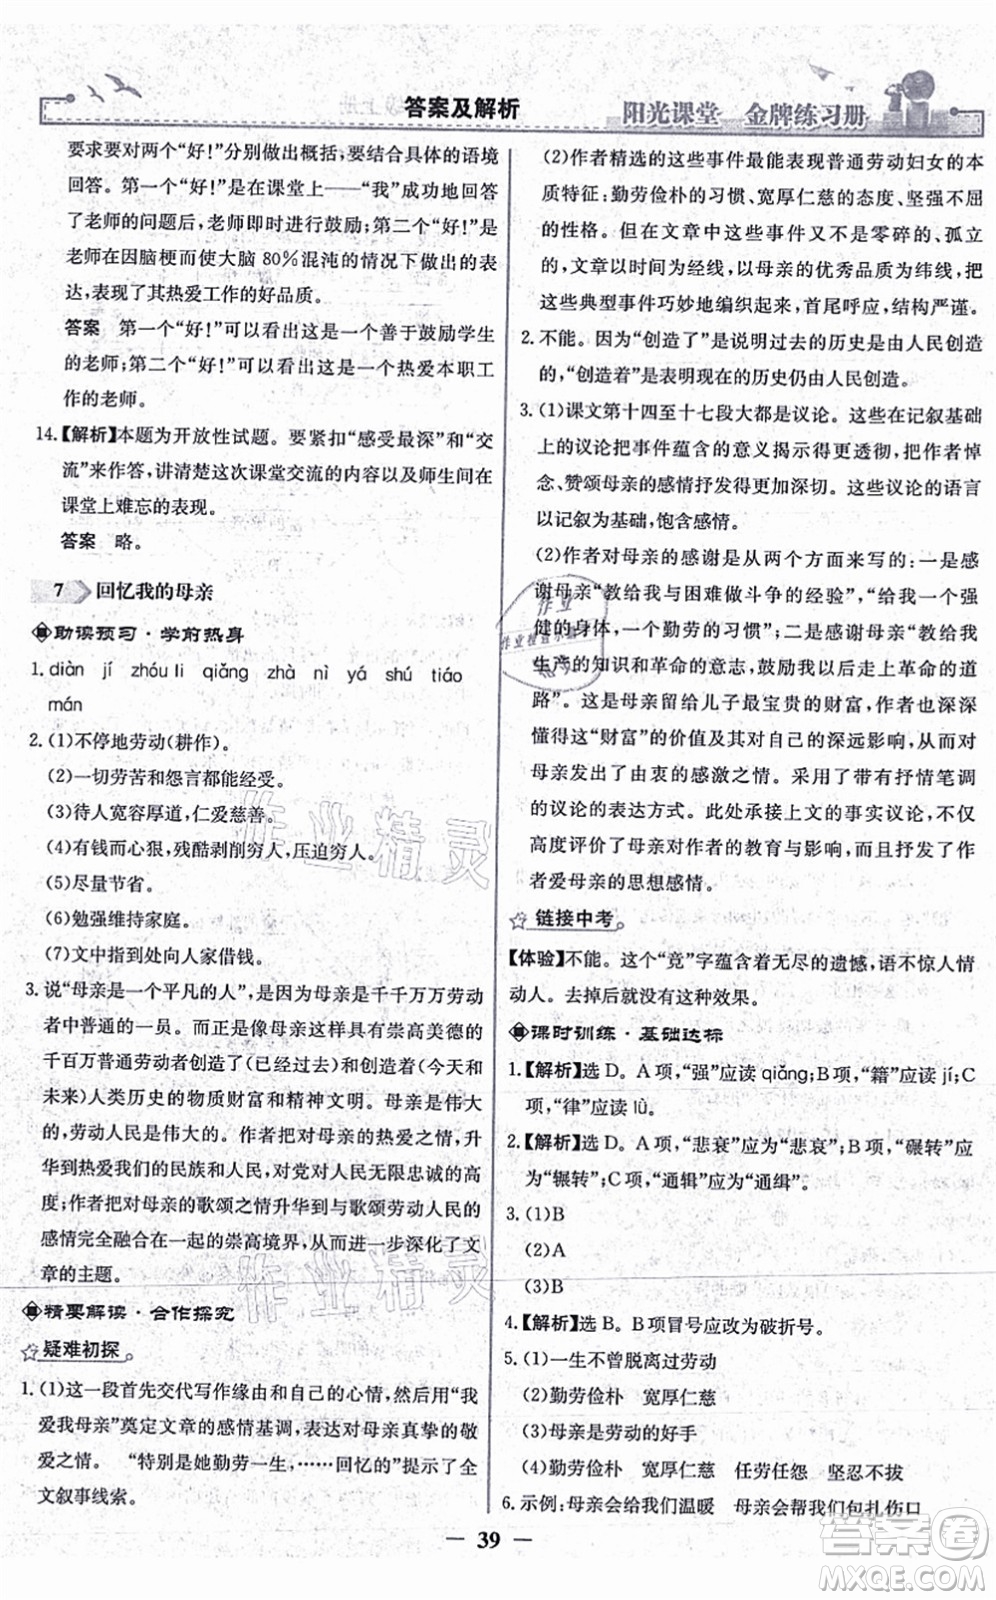 答案及解析
阳光课堂 金牌练习册
要求要对两个“好！”分别做出概括，要结合具体的语境
回答。第一个“好！”是在课堂上——“我”成功地回答
了老师的问题后，老师即时进行鼓励；第二个“好！”是
老师在因脑梗而使大脑 80%混沌的情况下做出的表
达，表现了其热爱工作的好品质。
答案 第一个“好！”可以看出这是一个善于鼓励学生
的老师；第二个“好！”可以看出这是一个热爱本职工
作的老师。
14.【解析】本题为开放性试题。要紧扣“感受最深”和“交
流”来作答，讲清楚这次课堂交流的内容以及师生间在
课堂上难忘的表现。
答案 略。
7 回忆我的母亲
助读预习·学前热身
1. diàn jí zhóu li qiǎng zhà nì yá shú tiáo
mán
2. (1)不停地劳动(耕作)。
(2)一切劳苦和怨言都能经受。
(3)待人宽容厚道，仁爱慈善。
(4)有钱而心狠，残酷剥削穷人，压迫穷人。
(5)尽量节省。
(6)勉强维持家庭。
(7)文中指到处向人家借钱。
3. 说“母亲是一个平凡的人”，是因为母亲是千千万万劳动
者中普通的一员。而正是像母亲这样具有崇高美德的
千百万普通劳动者创造了(已经过去)和创造着(今天和
未来)人类历史的物质财富和精神文明。母亲是伟大
的，劳动人民是伟大的。作者把对母亲的热爱之情，升
华到热爱我们的民族和人民，对党对人民无限忠诚的高
度；作者把对母亲的歌颂之情升华到与歌颂劳动人民的
感情完全融合在一起的崇高境界，从而进一步深化了文
章的主题。
精要解读·合作探究
疑难初探
1. (1)这一段首先交代写作缘由和自己的心情，然后用“我
爱我母亲”奠定文章的感情基调，表达对母亲真挚的敬
爱之情。 “特别是她勤劳一生，……回忆的”提示了全
文叙事线索。
(2)作者精选的这些事件最能表现普通劳动妇女的本
质特征：勤劳俭朴的习惯、宽厚仁慈的态度、坚强不屈
的性格。但在文章中这些事件又不是零碎的、孤立
的，文章以时间为经线，以母亲的优秀品质为纬线，把
这些典型事件巧妙地编织起来，首尾呼应，结构严谨。
2. 不能。因为“创造了”是说明过去的历史是由人民创造
的，“创造着”是表明现在的历史仍由人民创造。
3. (1)课文第十四至十七段大都是议论。这些在记叙基础
上的议论把事件蕴含的意义揭示得更透彻，把作者悼
念、赞颂母亲的感情抒发得更加深切。这些议论的语言
以记叙为基础，饱含感情。
(2)作者对母亲的感谢是从两个方面来写的：一是感
谢母亲“教给我与困难做斗争的经验”，“给我一个强
健的身体，一个勤劳的习惯”；二是感谢母亲“教给我
生产的知识和革命的意志，鼓励我走上革命的道
路”。这是母亲留给儿子最宝贵的财富，作者也深深
懂得这“财富”的价值及其对自己的深远影响，从而
对母亲发出了由衷的感激之情。采用了带有抒情笔调
的议论的表达方式。此处承接上文的事实议论，在内
容上，不仅点明了母亲对作者的教育与影响，还抒发了作
者爱母亲的思想感情。
链接中考
【体验】不能。这个“竟”字蕴含着无尽的遗憾，语不惊人情
动人。去掉后就没有这种效果。
课时训练·基础达标
1.【解析】选 D。A 项，“强”应读 qiǎng；B 项，“籍”应读 jí；C
项，“律”应读 lǜ。
2.【解析】选 D。A 项，“悲衰”应为“悲哀”；B 项，“碾转”应
为“辗转”；C 项，“通辑”应为“通缉”。
3. (1)B
(2)A
(3)B
4.【解析】选 B。B 项冒号应改为破折号。
5. (1)一生不曾脱离过劳动
(2)勤劳俭朴 宽厚仁慈
(3)母亲是个好劳动的好手
(4)勤劳俭朴 宽厚仁慈 任劳任怨 坚忍不拔
6. 示例：母亲会给我们温暖 母亲会帮我们包扎伤口
— 39 —
作业精灵
作业精灵
答案圈
MXQE.COM